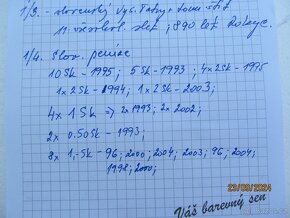 1/3. - slovenský
11. všesokol. slet, 890 let Rokyc.
1/4. Slov. peníze
10 Sk - 1995, 5 Sk - 1993, 4x 2 Sk - 1995
1x 2 Sk - 1994, 1x 2 Sk - 2003;
4x 1 Sk => 2x 1993; 2x 2002;
2x 0.50 Sk - 1993;
8x 1,- Sk - 96, 2000, 2004, 2003, 96, 2004,
1998, 2000;
23/09/2024
Váš barevný sen